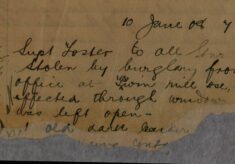 10 June 08 7
Supt Foster to all
Stolen by burglary from
office at
effected through window
was left open -
old dark leather